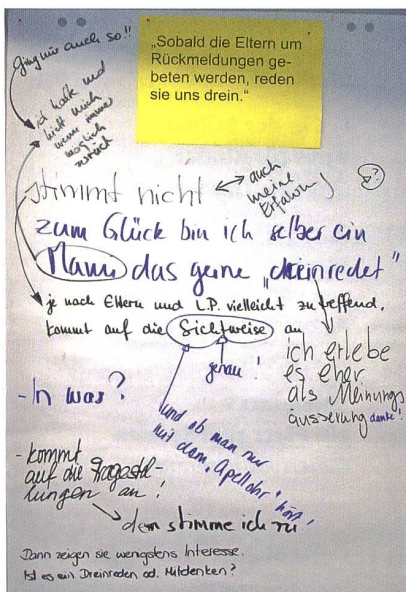 „Sobald die Eltern um
Rückmeldungen ge-
beten werden, reden
sie uns drein.“
Ging mir auch so!!
ich halte und
hielt mich
wenn immer
möglich
zurück
stimmt nicht
auch
meine
Erfahrung
?
zum Glück bin ich selber ein
Mami das gerne „dreinredet“
je nach Eltern und L.P. vielleicht zutreffend.
kommt auf die Sichtweise an
genau!
ich erlebe
es eher
als Meinungs
äusserung danke!
- In was?
und ob man nur
mit dem „Apellohr“ hört!
- kommt
auf die Fragestel-
lungen an!
dem stimme ich zu
Dann zeigen sie wenigstens Interesse.
Ist es ein Dreinreden od. Mitdenken?